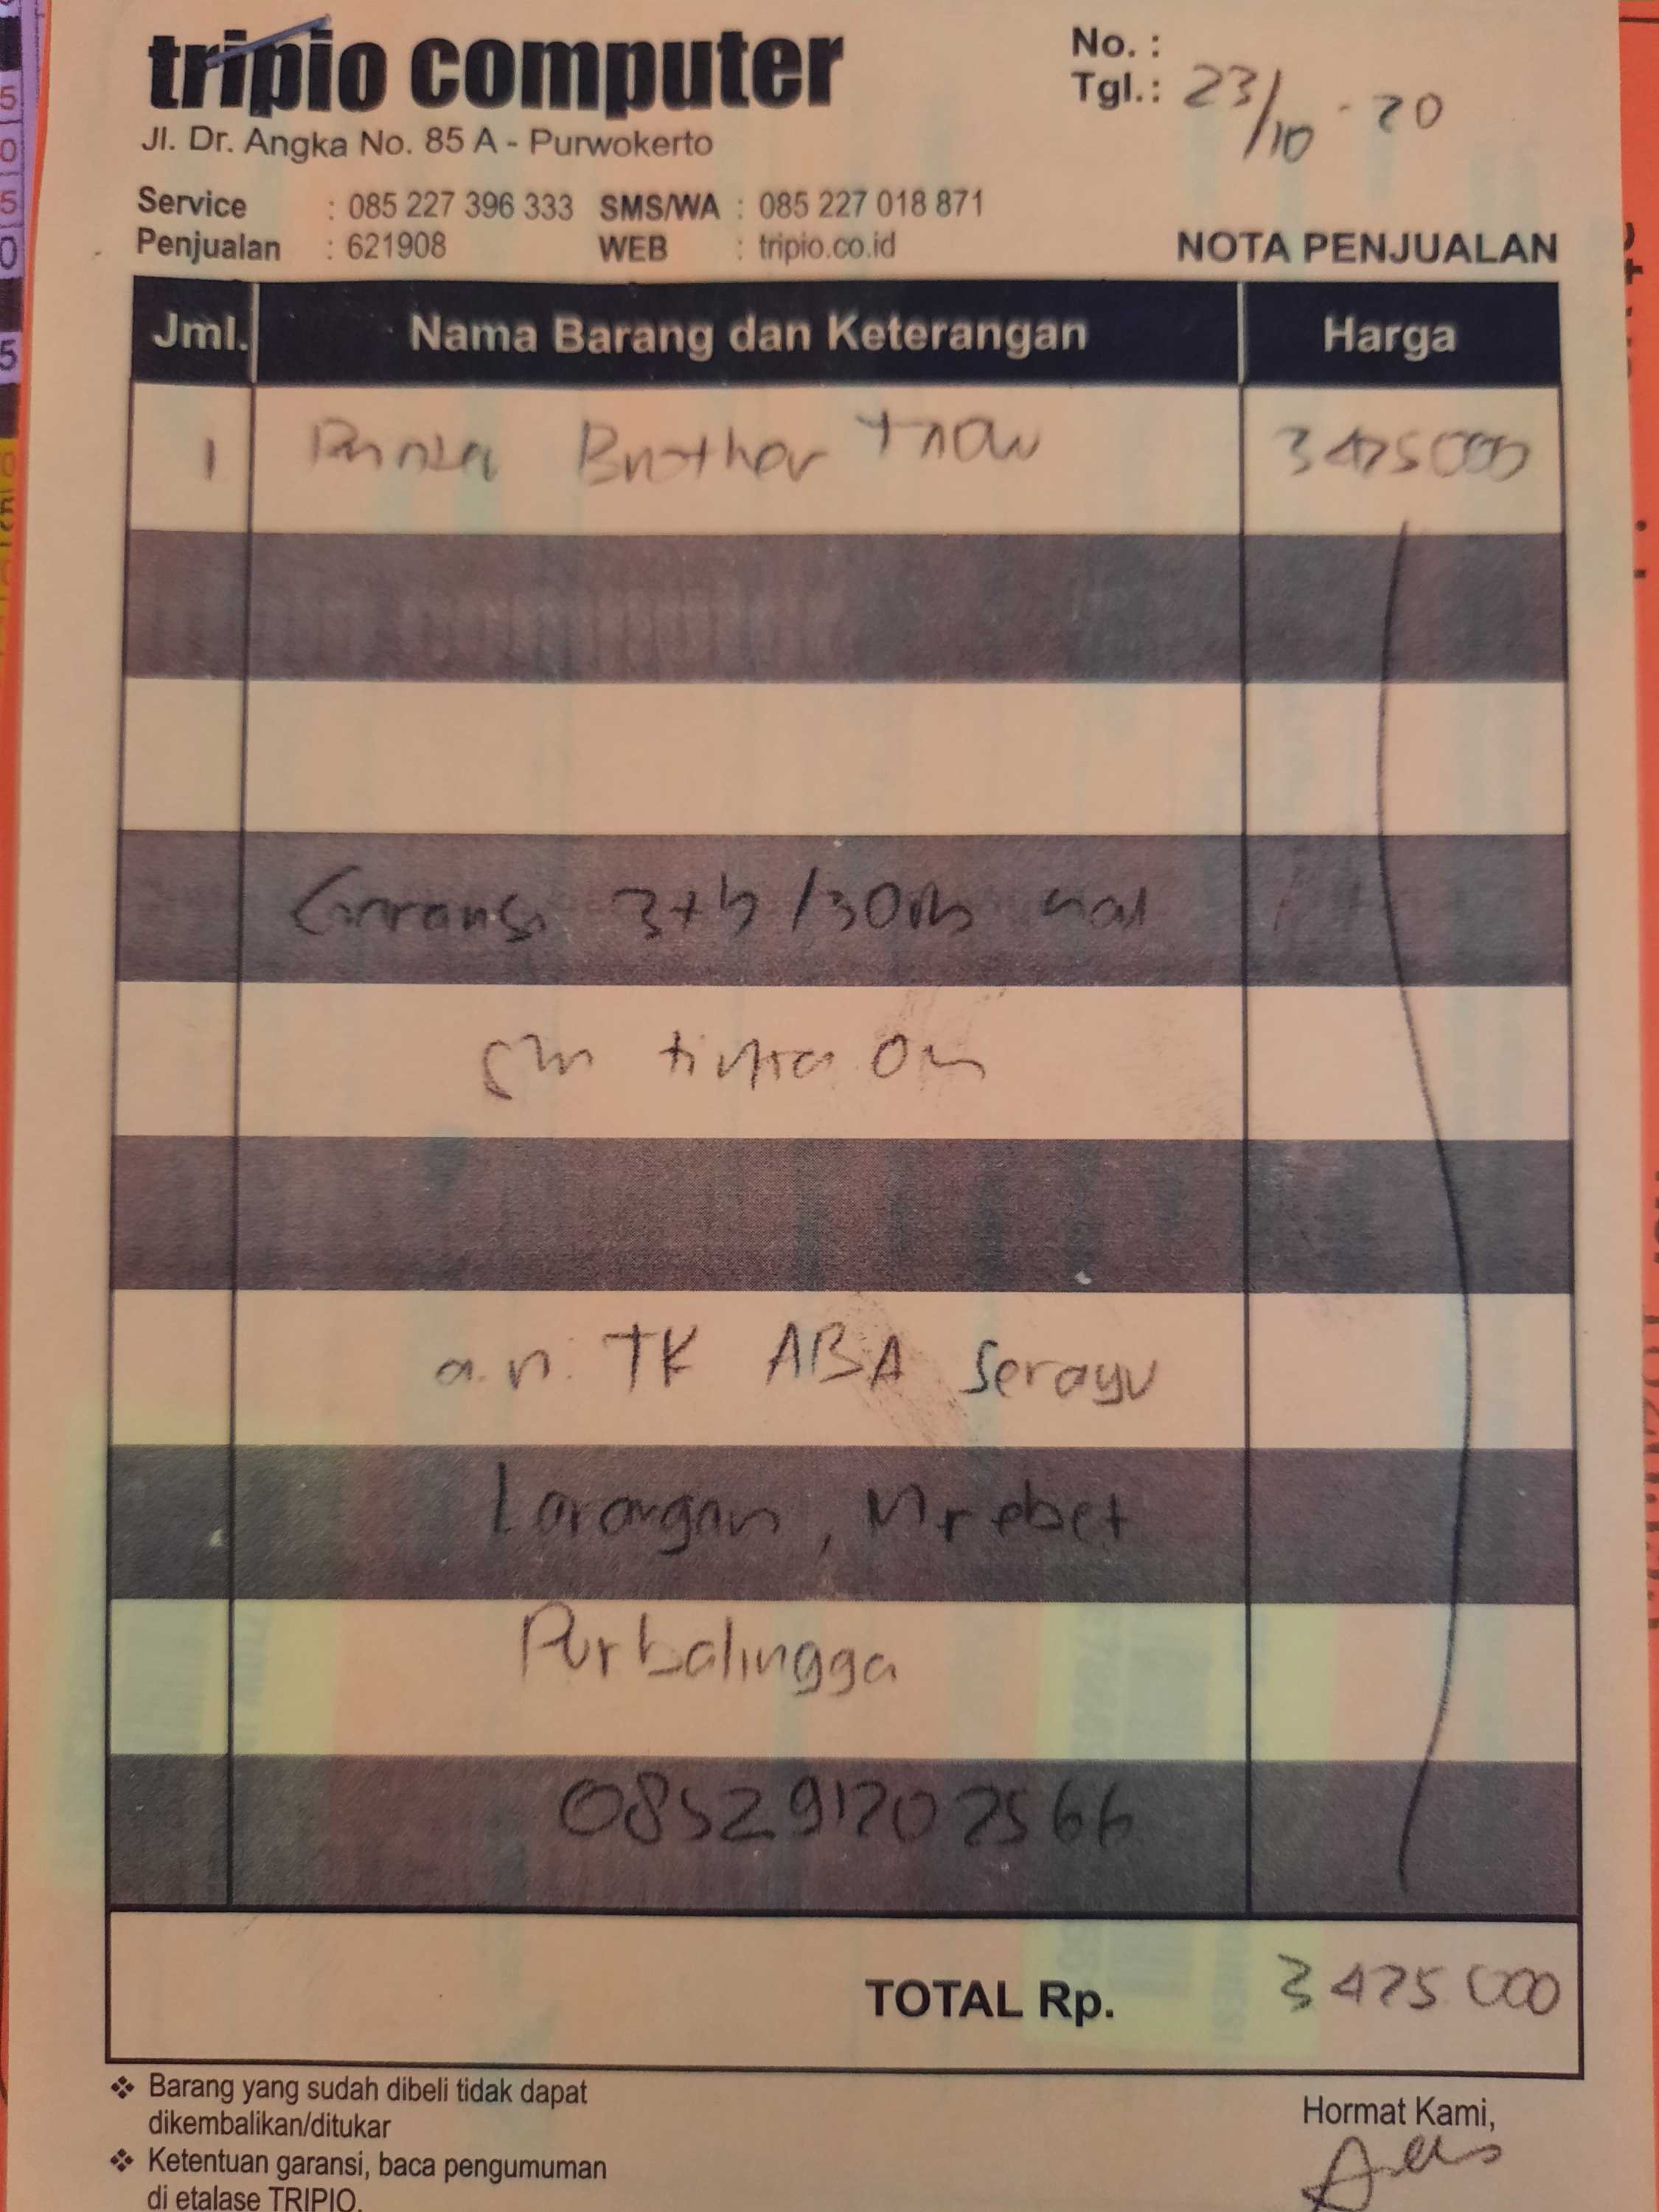 tripio computer
Jl. Dr. Angka No. 85 A - Purwokerto
No. :
Tgl.: 23/10 - 20
Service : 085 227 396 333 SMS/WA : 085 227 018 871
Penjualan : 621908 WEB : tripio.co.id
NOTA PENJUALAN
Jml. Nama Barang dan Keterangan Harga
1 Printer Brother 3425000
Garansi 3th /30rb
tinta
a.n. TK ABA Serayu
Larangan, Mrebet
Purbalingga
085291202566
TOTAL Rp. 3425000
❖ Barang yang sudah dibeli tidak dapat
dikembalikan/ditukar
❖ Ketentuan garansi, baca pengumuman
di etalase TRIPIO.
Hormat Kami,